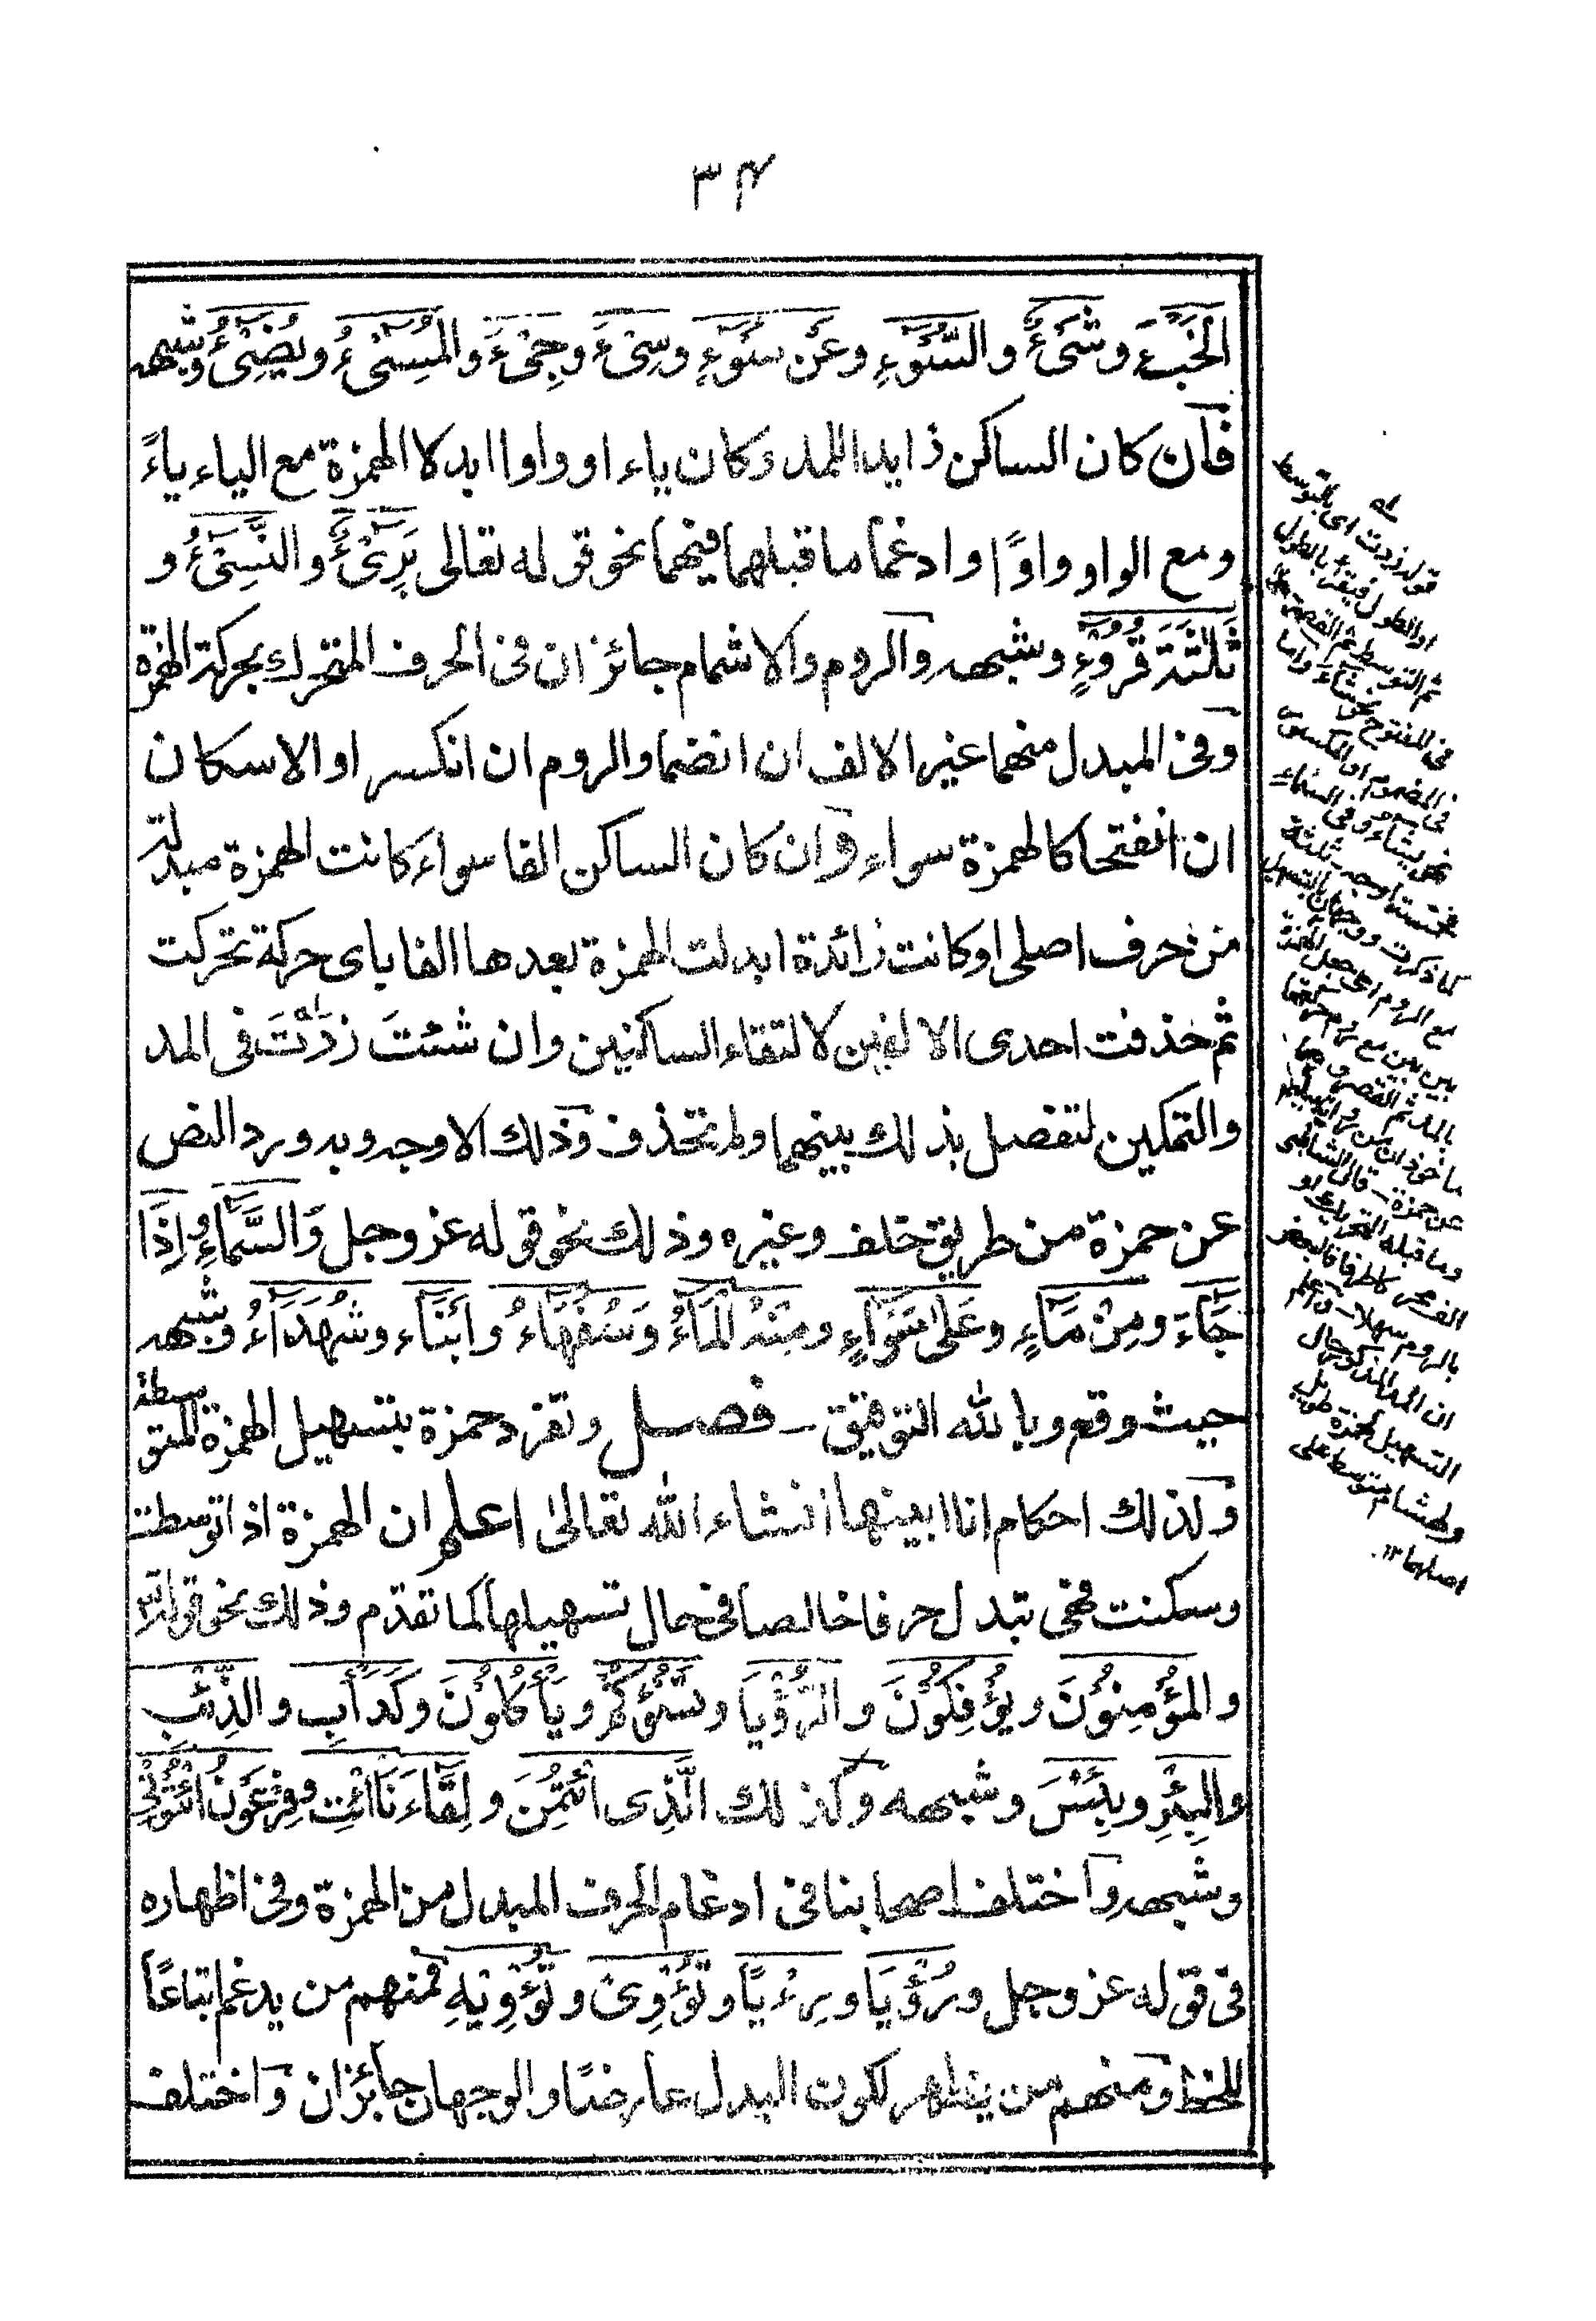 ٣٤
الْخَبْءَ وشَىْءٌ والسُّوْءِ وعَن سُوْءٍ وسِىْءَ وجِىْءَ والمُسِىْءُ ويُضِىْءُ وشبهه
فان كان الساكن زايدا للمد وكان ياء او واوا ابدلا الهمزة مع الياء ياءً
ومع الواو واوًا وادغما ما قبلهما فيهما نحو قوله تعالى بَرِىْءٌ والنَّسِىْءُ و
ثَلٰثَةَ قُرُوْءٍ وشبهه والروم والاشمام جائزان فى الحرف المتحرك بحركة الهمزة
وفى المبدل منهما غير الالف ان انضما والروم ان انكسر او الاسكان
ان انفتحا كالهمزة سواء وان كان الساكن الفا سواء كانت الهمزة مبدلة
من حرف اصلى او كانت زائدة ابدلت الهمزة بعدها الفا باى حركة تحركت
ثم حذفت احدى الالفين لالتقاء الساكنين وان شئتَ زدْتَ فى المد
والتمكين لتفصل بذلك بينهما ولم تحذف وذلك الاوجه وبه ورد النص
عن حمزة من طريق خلف وغيره وذلك نحو قوله عز وجل وَالسَّمَاءِ وإِذَا
جَاءَ ومِنْ مَاءٍ وعَلٰى سَوَاءٍ ومِنْهُ الْمَاءُ وَسُفَهَاءُ وأَبْنَاء وشُهَدَاءُ وشبهه
حيث وقع وبالله التوفيق - فصل وتفرد حمزة بتسهيل الهمزة المتوسطة
ولذلك احكام انا ابينها انشاء الله تعالىٰ اعلم ان الهمزة اذا توسطت
وسكنت فهى تبدل حرفا خالصا فى حال تسهيلها كما تقدم وذلك نحو قوله تعـ
والمُؤْمِنُوْنَ ويُؤْفِكُوْنَ والرُّؤْيَا وتَسُؤْكُمْ ويَأْكُلُوْنَ وكَدَأْبِ والذِّئْبِ
والبِئْرِ وبِئْسَ وشبهه وكذلك الَّذِى ائْتُمِنَ ولِقَاءَنَا ائْتِ وفِرْعَوْنُ ائْتُوْنِى
وشبهه واختلف اصحابنا فى ادغام الحرف المبدل من الهمزة وفى اظهاره
فى قوله عز وجل ورُؤْيَا ورِءْيًا وتُؤْوِىْ وتُؤْوِيْهِ فمنهم من يدغم اتباعًا
للخط ومنهم من يظهر لكون البدل عارضًا والوجهان جائزان واختلف
قوله زدت اى بالتوسط
او الطول فيقرأ بالطول
ثم التوسط ثم القصر
فى المفتوح نحو شاء واما
فى المضموم او المكسور
نحو يشاء وفى السماء
فخمسة اوجه ثلثة
كما ذكرت ووجهان بالتسهيل
مع الروم اى جعل الهمزة
بين بين مع روم حركتها
بالمد ثم القصر وهما
عن حمزة - قال الشاطبى
وما قبله التحريك او
الف محركا طرفا فالبعض
بالروم سهلا - واعلم
ان المد المذكور حال
التسهيل لحمزة طويل
ولهشام متوسط على
اصلهما ١٢